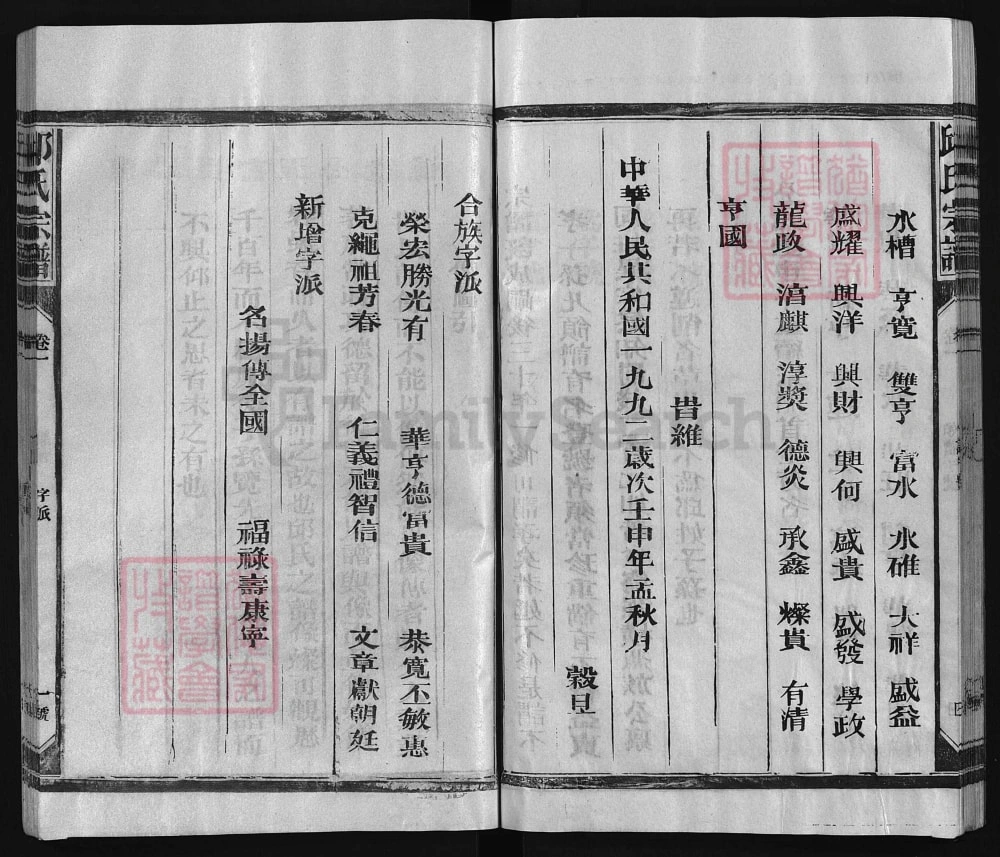 水槽 亨寬 雙亨 富水 水碓 大祥 盛益
盛耀 興洋 興財 興何 盛貴 盛發 學政
龍政 淯麒 淳獎 德炎 承鑫 燦貴 有清
亨國
旹維
中華人民共和國一九九二歲次壬申年孟秋月
穀旦
邱氏宗譜
合族字派
榮宏勝光有 華亨德富貴 恭寬丕敏惠
克繩祖芳春 仁義禮智信 文章獻朝廷
新增字派
名揚傳全國 福祿壽康寧
邱氏宗譜 卷一 字派 一號
FamilySearch